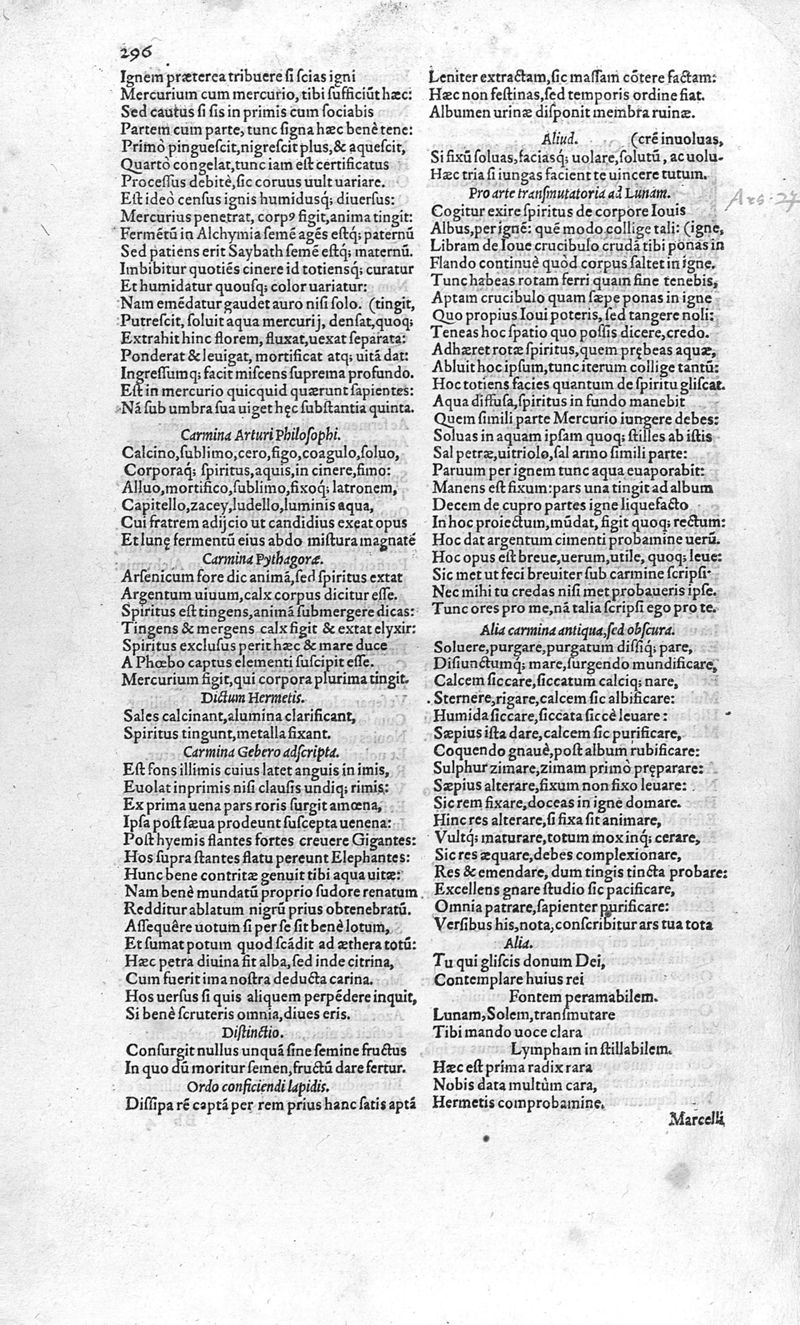 296
Ignem præterea tribuere si scias igni
Mercurium cum mercurio, tibi sufficiũt hæc:
Sed cautus si sis in primis cum sociabis
Partem cum parte, tunc signa hæc benè tene:
Primò pinguescit, nigrescit plus, & aquescit,
Quartò congelat, tunc iam est certificatus
Processus debitè, sic coruus uult uariare.
Est ideò census ignis humidusq́; diuersus:
Mercurius penetrat, corpꝰ figit, anima tingit:
Fermẽtũ in Alchymia semẽ agẽs estq́; paternũ
Sed patiens erit Saybath semẽ estq́; maternũ.
Imbibitur quotiẽs cinere id totiensq́; curatur
Et humidatur quousq́; color uariatur:
Nam emẽdatur gaudet auro nisi solo. (tingit,
Putrescit, soluit aqua mercurij, densat, quoq;
Extrahit hinc florem, fluxat, uexat separata:
Ponderat & leuigat, mortificat atq; uitã dat:
Ingressumq; facit miscens suprema profundo.
Est in mercurio quicquid quærunt sapientes:
Nã sub umbra sua uiget hęc substantia quinta.
Carmina Arturi Philosophi.
Calcino, sublimo, cero, figo, coagulo, soluo,
Corporaq́; spiritus, aquis, in cinere, fimo:
Alluo, mortifico, sublimo, fixoq́; latronem,
Capitello, zacey, ludello, luminis aqua,
Cui fratrem adijcio ut candidius exeat opus
Et lunę fermentũ eius abdo mistura magnatẽ
Carmina Pythagoræ.
Arsenicum fore dic animã, sed spiritus extat
Argentum uiuum, calx corpus dicitur esse.
Spiritus est tingens, animã submergere dicas:
Tingens & mergens calx figit & extat elyxir:
Spiritus exclusus perit hæc & mare duce
A Phœbo captus elementi suscipit esse.
Mercurium figit, qui corpora plurima tingit.
Dictum Hermetis.
Sales calcinant, alumina clarificant,
Spiritus tingunt, metalla fixant.
Carmina Gebero adscripta.
Est fons illimis cuius latet anguis in imis,
Euolat inprimis nisi clausis undiq; rimis:
Ex prima uena pars roris surgit amœna,
Ipsa post sæua prodeunt suscepta uenena:
Post hyemis flantes fortes creuere Gigantes:
Hos supra stantes flatu pereunt Elephantes:
Hunc bene contritæ genuit tibi aqua uitæ:
Nam benè mundatũ proprio sudore renatum
Redditur ablatum nigrũ prius obtenebratũ.
Assequêre uotum si per se sit benè lotum,
Et sumat potum quod scãdit ad æthera totũ:
Hæc petra diuina fit alba, sed inde citrina,
Cum fuerit ima nostra deducta carina.
Hos uersus si quis aliquem perpẽdere inquit,
Si benè scruteris omnia, diues eris.
Distinctio.
Consurgit nullus unquã sine semine fructus
In quo dũ moritur semen, fructũ dare fertur.
Ordo conficiendi lapidis.
Dissipa rẽ captã per rem prius hanc satis aptã
Leniter extractam, sic massam cõtere factam:
Hæc non festinas, sed temporis ordine fiat.
Albumen urinæ disponit membra ruinæ.
Aliud. (crẽ inuoluas,
Si fixũ soluas, faciasq́; uolare, solutũ, ac uolu-
Hæc tria si iungas facient te uincere tutum.
Pro arte transmutatoria ad Lunam.
Ars. 27
Cogitur exire spiritus de corpore Iouis
Albus, per ignẽ: quẽ modo collige tali: (igne,
Libram de Ioue crucibulo crudã tibi ponas in
Flando continuè quòd corpus saltet in igne.
Tunc habeas rotam ferri quam sine tenebis,
Aptam crucibulo quam sæpe ponas in igne
Quo propius Ioui poteris, sed tangere noli:
Teneas hoc spatio quo possis dicere, credo.
Adhæret rotæ spiritus, quem prębeas aquæ,
Abluit hoc ipsum, tunc iterum collige tantũ:
Hoc totiens facies quantum de spiritu gliscat.
Aqua diffusa, spiritus in fundo manebit
Quem simili parte Mercurio iungere debes:
Soluas in aquam ipsam quoq; stilles ab istis
Sal petræ, uitriolo, sal armo simili parte:
Paruum per ignem tunc aqua euaporabit:
Manens est fixum: pars una tingit ad album
Decem de cupro partes igne liquefacto
In hoc proiectum, mũdat, figit quoq; rectum:
Hoc dat argentum cimenti probamine uerũ.
Hoc opus est breue, uerum, utile, quoq; leue:
Sic met ut feci breuiter sub carmine scripsi
Nec mihi tu credas nisi met probaueris ipse.
Tunc ores pro me, nã talia scripsi ego pro te.
Alia carmina antiqua, sed obscura.
Soluere, purgare, purgatum dissiq́; pare,
Disiunctumq́; mare, surgendo mundificare,
Calcem siccare, siccatum calciq́; nare,
Sternere, rigare, calcem sic albificare:
Humida siccare, siccata siccè leuare:
Sæpius ista dare, calcem sic purificare,
Coquendo gnauè, post album rubificare:
Sulphur zimare, zimam primò pręparare:
Sæpius alterare, fixum non fixo leuare:
Sic rem fixare, doceas in igne domare.
Hinc res alterare, si fixa sit animare,
Vultq́; maturare, totum mox inq́; cerare,
Sic res æquare, debes complexionare,
Res & emendare, dum tingis tincta probare:
Excellens gnare studio sic pacificare,
Omnia patrare, sapienter purificare:
Versibus his, nota, conscribitur ars tua tota
Alia.
Tu qui gliscis donum Dei,
Contemplare huius rei
Fontem peramabilem.
Lunam, Solem, transmutare
Tibi mando uoce clara
Lympham instillabilem.
Hæc est prima radix rara
Nobis data multùm cara,
Hermetis comprobamine.
Marcelli